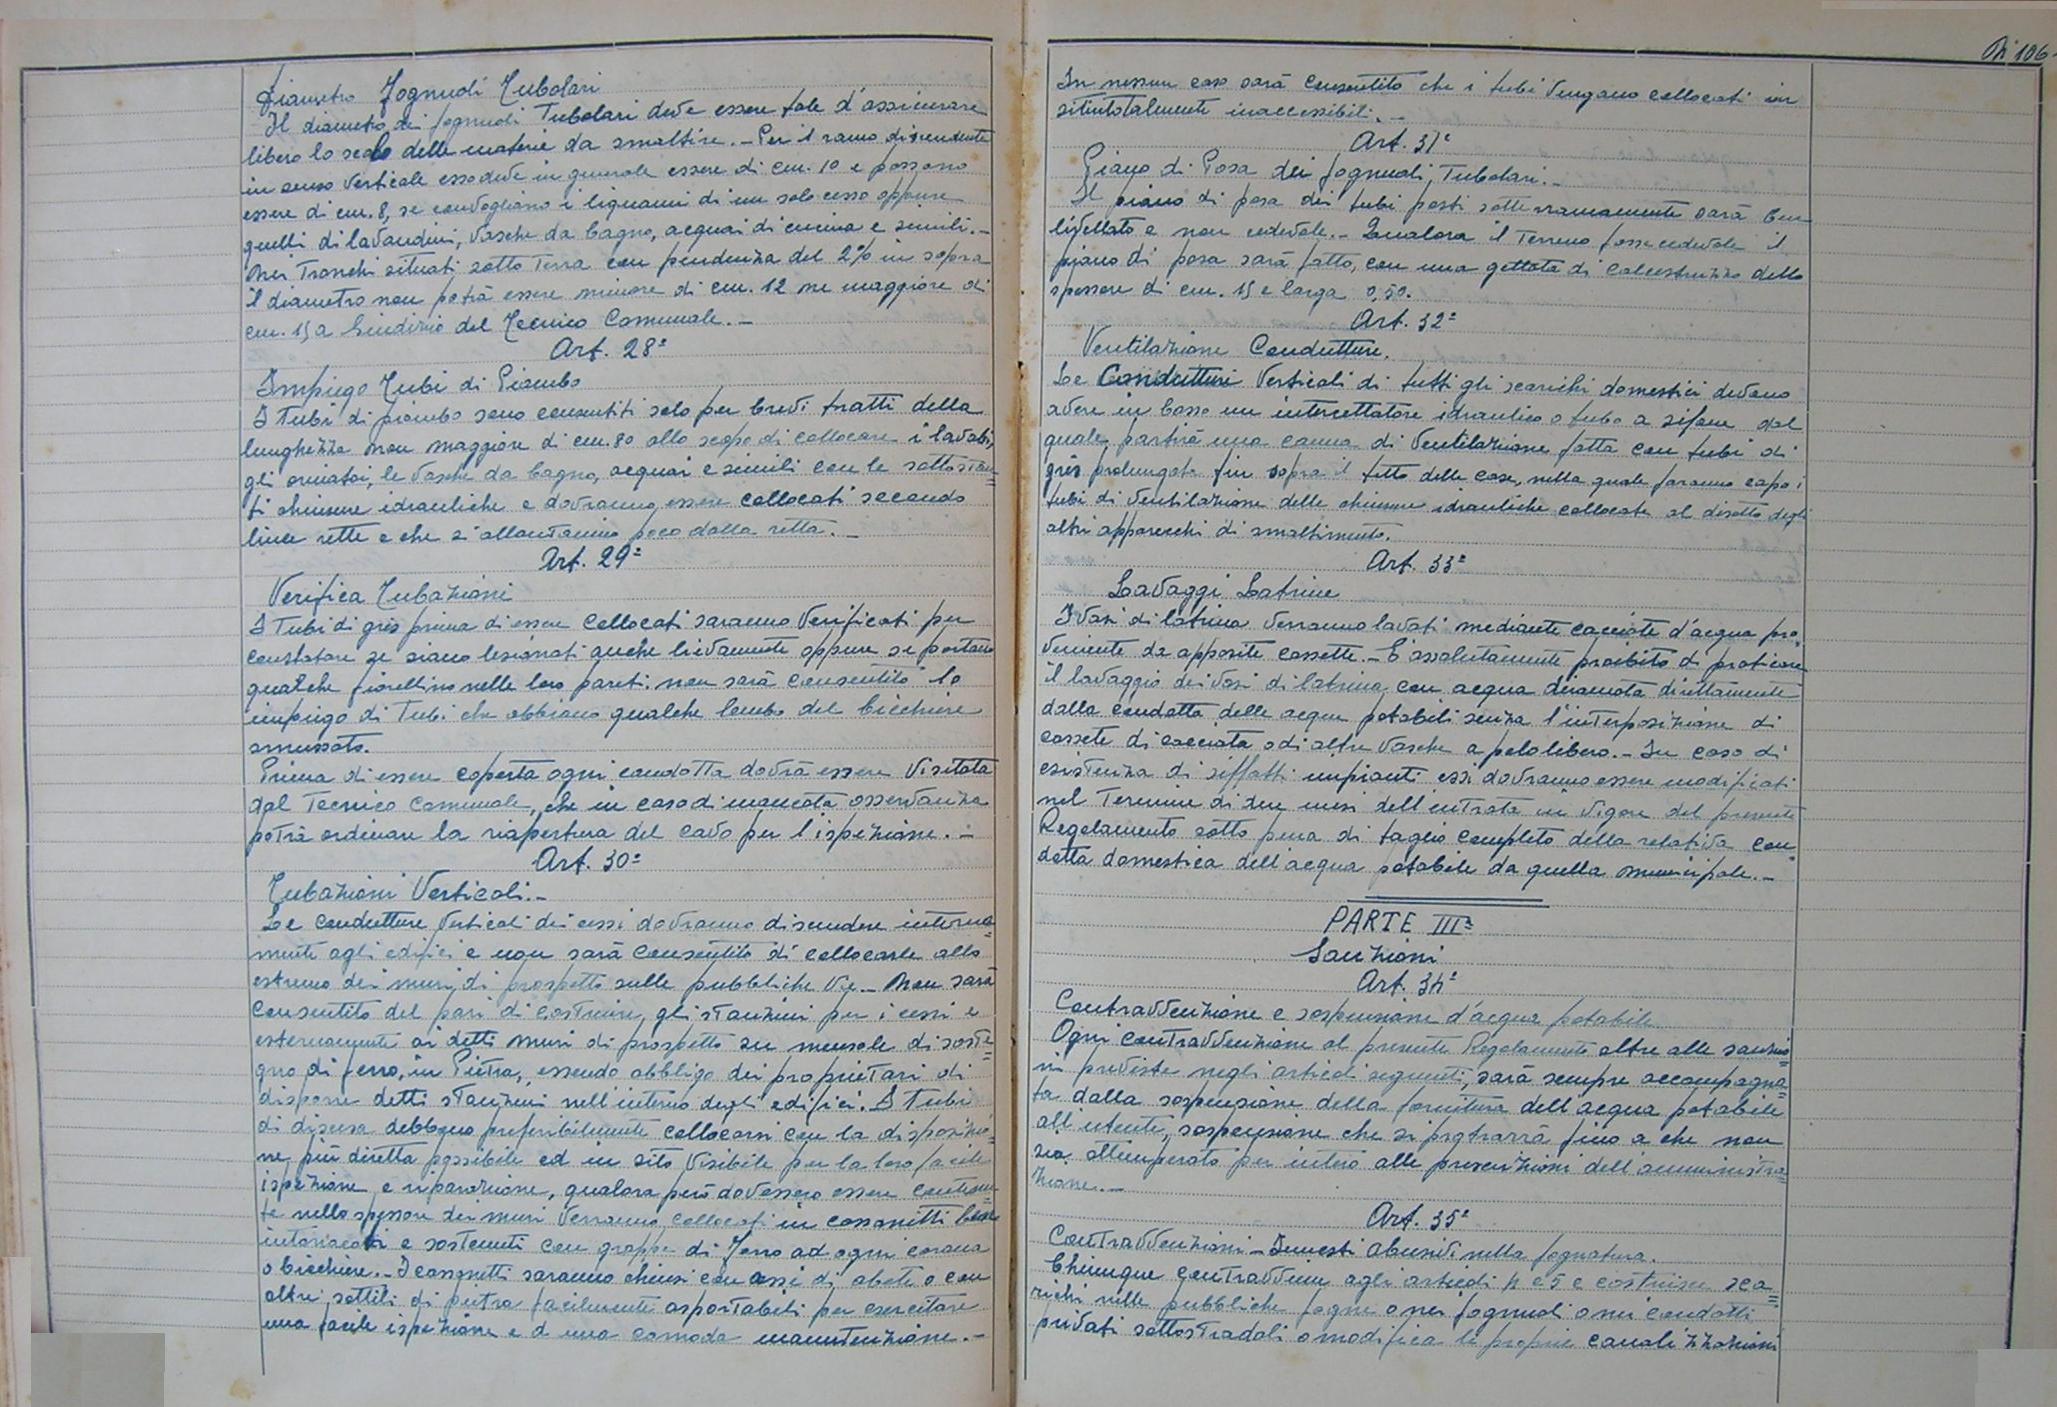 Diametro Fognuoli Tubolari
Il diametro dei fognuoli Tubolari deve essere tale d'assicurare
libero lo scolo delle materie da smaltire. - Per il ramo discendente
in senso verticale esso deve in generale essere di cm. 10 e possono
essere di cm. 8, se convogliano i liquami di un solo cesso oppure
quelli di lavandini, vasche da bagno, acquai di cucina e simili. -
Nei Tronchi situati sotto Terra con pendenza del 2% in sopra
il diametro non potrà essere minore di cm. 12 ne maggiore di
cm. 15 a Giudizio del Tecnico Comunale. -
Art. 28°
Impiego Tubi di Piombo
I Tubi di piombo sono consentiti solo per brevi tratti della
lunghezza non maggiore di cm. 80 allo scopo di collocare i lavabi,
gli orinatoi, le vasche da bagno, acquai e simili con le sottostan=
ti chiusure idrauliche e dovranno essere collocati secondo
linee rette e che si allontanino poco dalla retta. -
Art. 29°
Verifica Tubazioni
I Tubi di gres prima di essere collocati saranno verificati per
constatare se siano lesionati anche lievemente oppure se portano
qualche fiorellino nelle loro pareti. non sarà consentito lo
impiego di Tubi che abbiano qualche lembo del bicchiere
smussato.
Prima di essere coperta ogni condotta dovrà essere visitata
dal Tecnico Comunale, che in caso di mancata osservanza
potrà ordinare la riapertura del cavo per l'ispezione. -
Art. 30°
Tubazioni Verticali. -
Le condutture verticali dei cessi dovranno discendere interna=
mente agli edifici e non sarà consentito di collocarle allo
esterno dei muri di prospetto sulle pubbliche Vie - Non sarà
consentito del pari di costruire gli stanzini per i cessi e
esternamente ai detti muri di prospetto su mensole di soste=
gno di ferro, in Pietra, essendo obbligo dei proprietari di
disporre detti stanzini nell'interno degli edifici. I Tubi
di discesa debbono preferibilmente collocarsi con la disposizio=
ne più diretta possibile ed in sito visibile per la loro facile
ispezione e riparazione, qualora però dovessero essere contenu=
te nello spessore dei muri verranno collocati in cassonetti bene
intonacati e sostenuti con grappe di ferro ad ogni corona
o bicchiere. - I cassonetti saranno chiusi con assi di abete o con
altri sottili di pietra facilmente asportabili per esercitare
una facile ispezione e d una comoda manutenzione. -
N° 106
In nessun caso sarà consentito che i tubi vengano collocati in
siti totalmente inaccessibili. -
Art. 31°
Piano di Posa dei fognuoli Tubolari. -
Il piano di posa dei tubi posti sotterraneamente sarà ben
livellato e non cedevole. - Qualora il Terreno fosse cedevole il
piano di posa sarà fatto, con una gettata di calcestruzzo dello
spessore di cm. 15 e larga 0,50.
Art. 32°
Ventilazione Condutture.
Le Condutture Verticali di tutti gli scarichi domestici devono
avere in basso un intercettatore idraulico o tubo a sifone dal
quale partirà una canna di ventilazione fatta con tubi di
gres prolungata fin sopra il tetto delle case, nella quale faranno capo i
tubi di ventilazione delle chiusure idrauliche collocate al disotto degli
altri apparecchi di smaltimento.
Art. 33°
Lavaggi Latrine
I vasi di latrina verranno lavati mediante cacciate d'acqua pro=
veniente da apposite cassette. - È assolutamente proibito di praticare
il lavaggio dei vasi di latrina con acqua diramata direttamente
dalla condotta delle acque potabili senza l'interposizione di
cassete di cacciata o di altre vasche a pelo libero. - In caso di
esistenza di siffatti impianti essi dovranno essere modificati
nel Termine di due mesi dell'entrata in vigore del presente
Regolamento sotto pena di taglio completo della relativa con=
dotta domestica dell'acqua potabile da quella municipale. -
PARTE IIIa
Sanzioni
Art. 34°
Contravvenzione e sospensione d'acqua potabile
Ogni contravvenzione al presente Regolamento oltre alle sanzio=
ni previste negli articoli seguenti, sarà sempre accompagna=
ta dalla sospensione della fornitura dell'acqua potabile
all'utente, sospensione che si protrarrà fino a che non
sia ottemperato per intero alle prescrizioni dell'amministra=
zione. -
Art. 35°
Contravvenzioni - Innesti abusivi nella fognatura.
Chiunque contravviene agli articoli 4 e 5 e costruisce sca=
richi nelle pubbliche fogne o nei fognuoli o nei condotti
privati sottostradali o modifica le proprie canalizzazioni